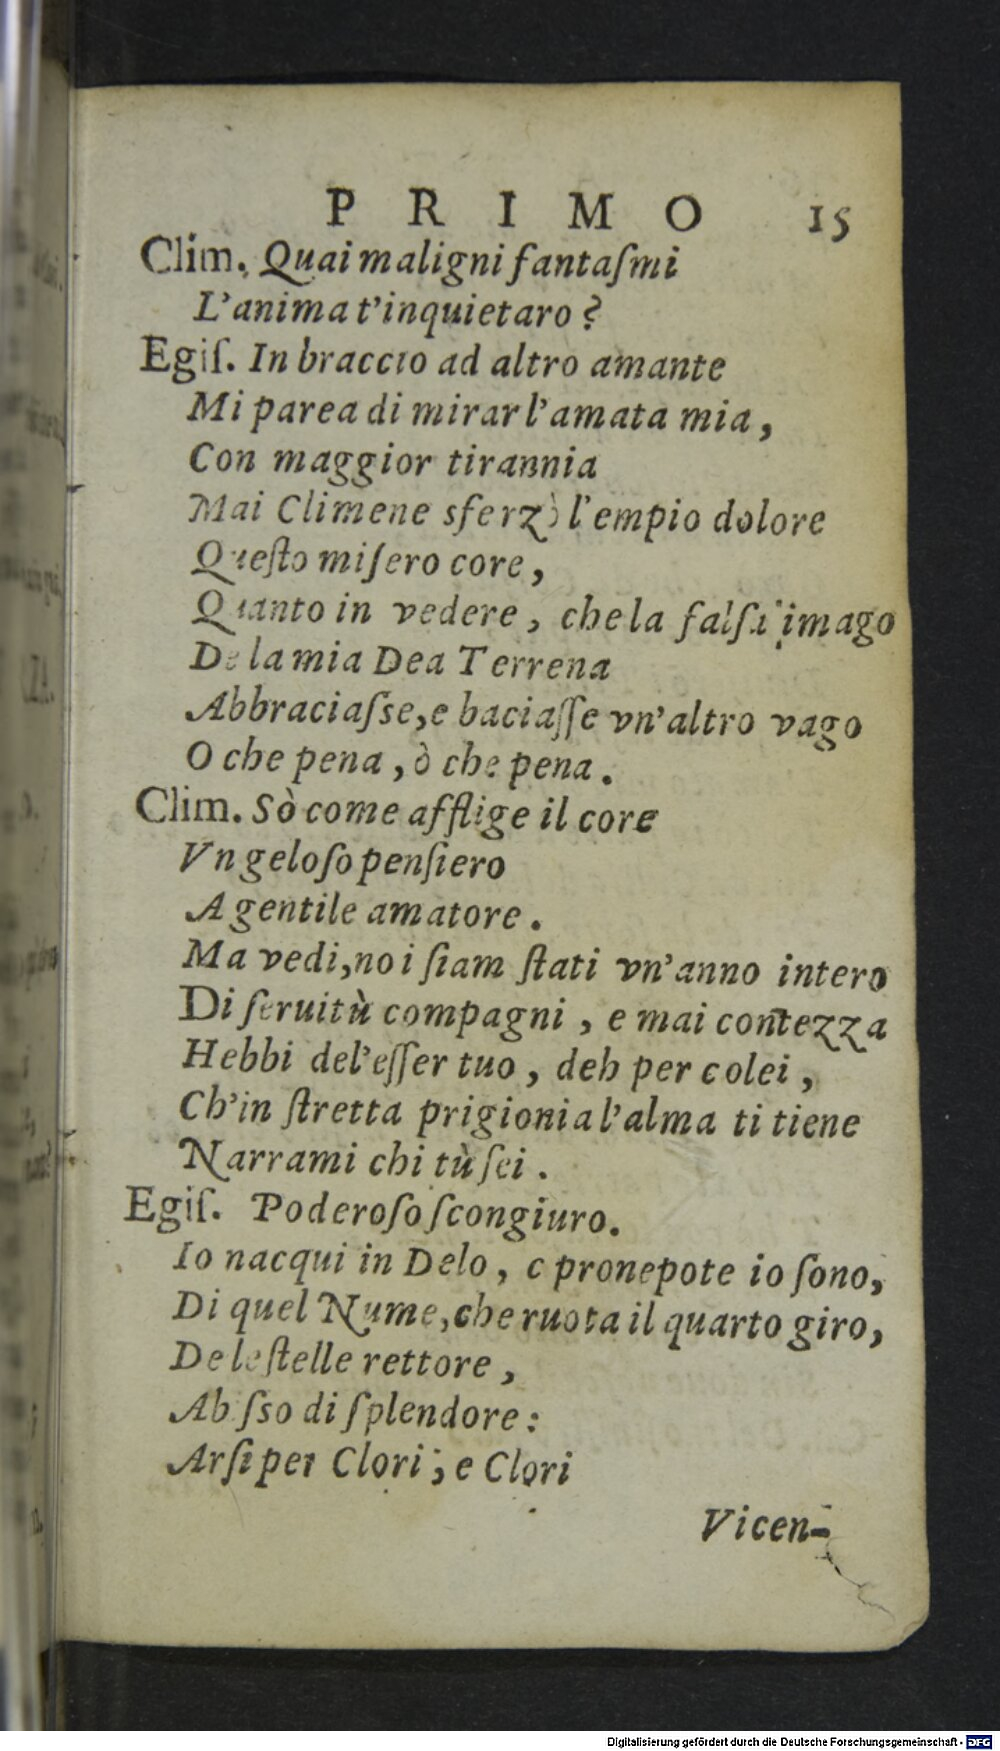 PRIMO 15
Clim. Quai maligni fantaſmi
L'anima t'inquietaro?
Egiſ. In braccio ad altro amante
Mi parea di mirar l'amata mia,
Con maggior tirannia
Mai Climene sferzò l'empio dolore
Queſto miſero core,
Quanto in vedere, che la falſa imago
De la mia Dea Terrena
Abbraciaſse, e baciaſſe vn'altro vago
O che pena, ò che pena.
Clim. Sò come afflige il core
Vn geloſo penſiero
A gentile amatore.
Ma vedi, noi ſiam ſtati vn'anno intero
Di ſeruitù compagni, e mai contezza
Hebbi del'eſſer tuo, deh per colei,
Ch'in ſtretta prigionia l'alma ti tiene
Narrami chi tù ſei.
Egiſ. Poderoſo ſcongiuro.
Io nacqui in Delo, e pronepote io ſono,
Di quel Nume, che ruota il quarto giro,
De le ſtelle rettore,
Abiſso di ſplendore:
Arſi per Clori, e Clori
Vicen-
Digitalisierung gefördert durch die Deutsche Forschungsgemeinschaft - DFG